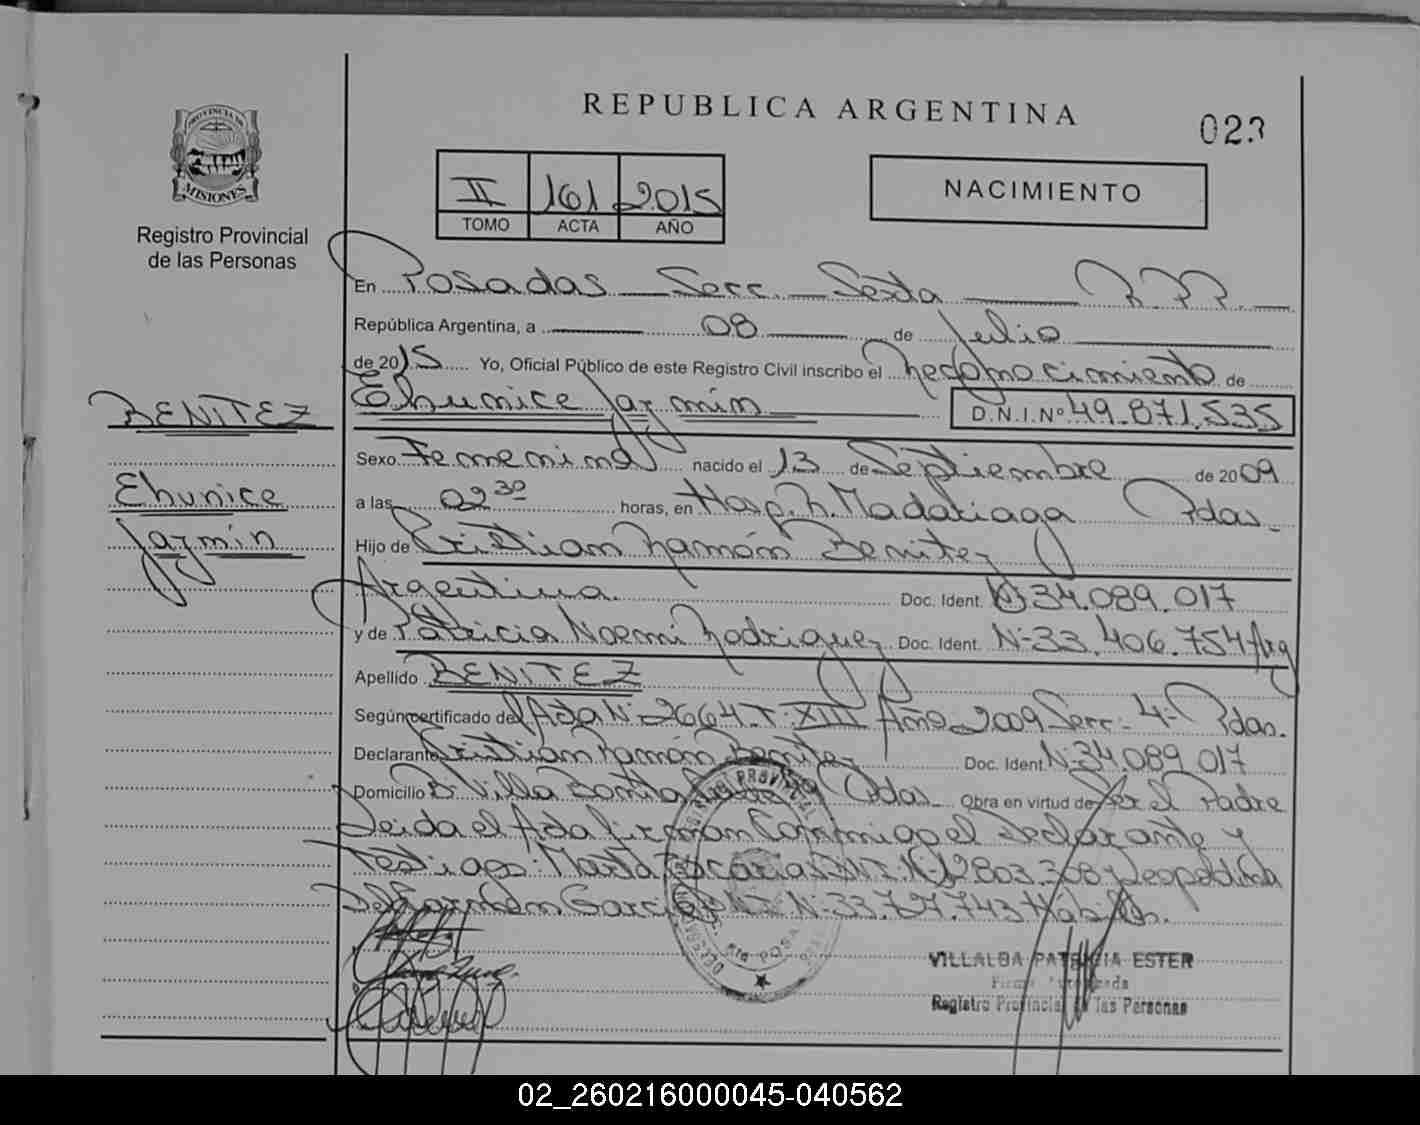 REPUBLICA ARGENTINA
023
PROVINCIA DE
MISIONES
Registro Provincial
de las Personas
II 161 2015
TOMO ACTA AÑO
NACIMIENTO
En Posadas Secc. Sexta
República Argentina, a 08 de Julio
de 2015 Yo, Oficial Público de este Registro Civil inscribo el Reconocimiento de
Ehunice Jazmín D.N.I.Nº 49.871.535
BENITEZ
Ehunice
Jazmín
Sexo Femenino nacido el 13 de Septiembre de 2009
a las 02 30 horas, en Hosp. R. Madariaga Pdas.
Hijo de Cristian Ramón Benitez
Argentina. Doc. Ident. 34.089.017
y de Patricia Noemi Rodriguez Doc. Ident. Nº 33.406.754 Arg
Apellido BENITEZ
Según certificado de Acta Nº 2664 T: XIII Año 2009 Secc: 4º Pdas.
Declarante Cristian Ramón Benitez Doc. Ident. Nº 34.089.017
Domicilio Bº Villa Pdas Obra en virtud de Ser el Padre
Leida el Acta Firman Conmigo el Declarante y
Testigos: Marta DNI. Nº 12.803.308 y Leopoldina
Del Carmen Garcia DNI Nº 33.727.743 Hábiles.
VILLALBA PATRICIA ESTER
Firma Autorizada
Registro Provincial de las Personas
02_260216000045-040562